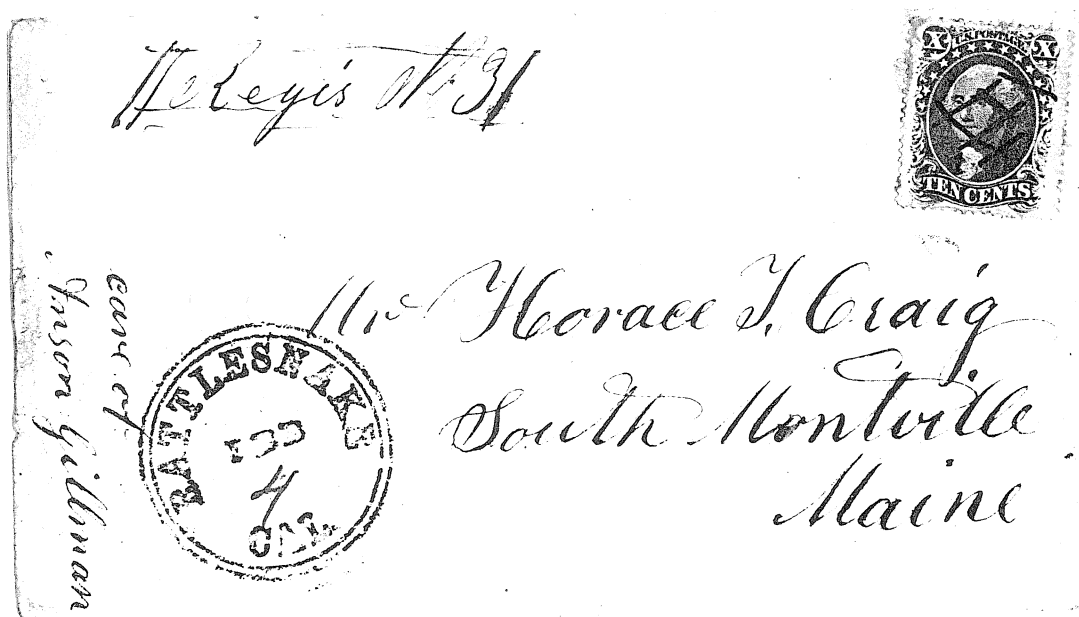 Regis No 31
X U.S. POSTAGE X
TEN CENTS
Mr Horace T. Craig
South Montville
Maine
care of
Anson Gillman
RATTLESNAKE
FEB
4
CAL.